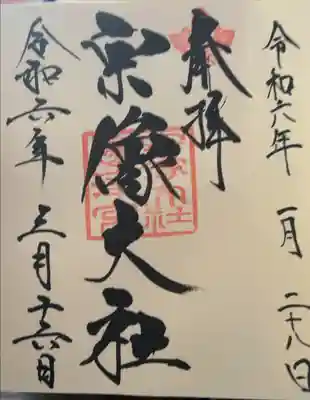 令和六年 一月 二十八日
奉拝
宗像大社
令和六年 三月十六日